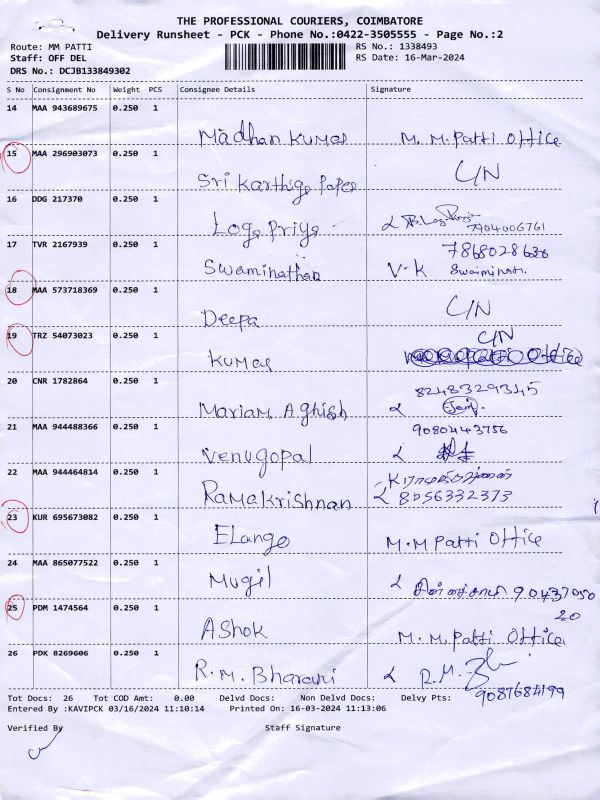 THE PROFESSIONAL COURIERS, COIMBATORE
Delivery Runsheet - PCK - Phone No.:0422-3505555 - Page No.:2
Route: MM PATTI RS No.: 1338493
Staff: OFF DEL RS Date: 16-Mar-2024
DRS No.: DCJB133849302
S No Consignment No Weight PCS Consignee Details Signature
14 MAA 943689675 0.250 1
Madhan Kumar M. M. Patti Office
15 MAA 296903073 0.250 1
Sri Karthige Paper C/N
16 DDG 217370 0.250 1
Loge Priye 7904006761
17 TVR 2167939 0.250 1 7868028636
Swaminathan V.K
18 MAA 573718369 0.250 1
Deepa C/N
19 TRZ 54073023 0.250 1 C/N
Kumar
20 CNR 1782864 0.250 1 8248329345
Mariam Aghish
21 MAA 944488366 0.250 1 9080443756
Venugopal
22 MAA 944464814 0.250 1
Ramakrishnan 8056332373
23 KUR 695673082 0.250 1
Elango M.M Patti Office
24 MAA 865077522 0.250 1
Mugil 90437050
25 PDM 1474564 0.250 1 20
Ashok M.M. Patti Office
26 PDK 8269606 0.250 1
R.M. Bharani R.M.
9087684199
Tot Docs: 26 Tot COD Amt: 0.00 Delvd Docs: Non Delvd Docs: Delvy Pts:
Entered By :KAVIPCK 03/16/2024 11:10:14 Printed On: 16-03-2024 11:13:06
Verified By Staff Signature